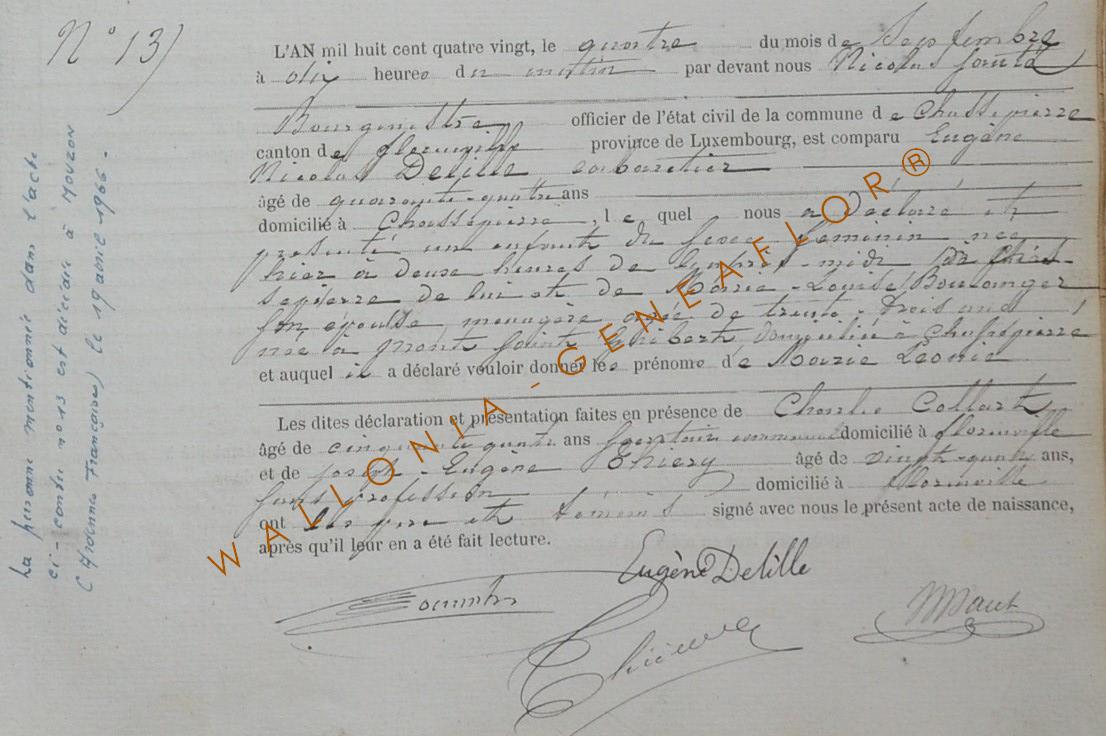 N° 13)
La personne mentionnée dans l'acte
ci-contre no 13 est décédée à Mouzon
(Ardennes Françaises) le 19 avril 1966.
L'AN mil huit cent quatre vingt, le quatre du mois de Septembre
à dix heures du matin par devant nous Nicolas
Bourgmestre officier de l'état civil de la commune de Chassepierre
canton de Florenville province de Luxembourg, est comparu Eugène
Nicolas Delille cabaretier
âgé de quarante-quatre ans
domicilié à Chassepierre, lequel nous a déclaré et
présenté un enfant du sexe féminin née
hier à deux heures de l'après-midi de Chas-
sepierre de lui et de Marie-Louise Boulanger
son épouse ménagère agée de trente-trois ans
née à Mont Saint domiciliée à Chassepierre
et auquel il a déclaré vouloir donner les prénoms de Marie Léonie
Les dites déclaration et présentation faites en présence de Charles Collart
âgé de cinquante quatre ans communal domicilié à Florenville
et de Joseph-Eugène Thiery âgé de vingt-quatre ans,
sans profession domicilié à Florenville
ont les père et témoins signé avec nous le présent acte de naissance,
après qu'il leur en a été fait lecture.
Eugène Delille
WALLONIA-GENEAFLOR®